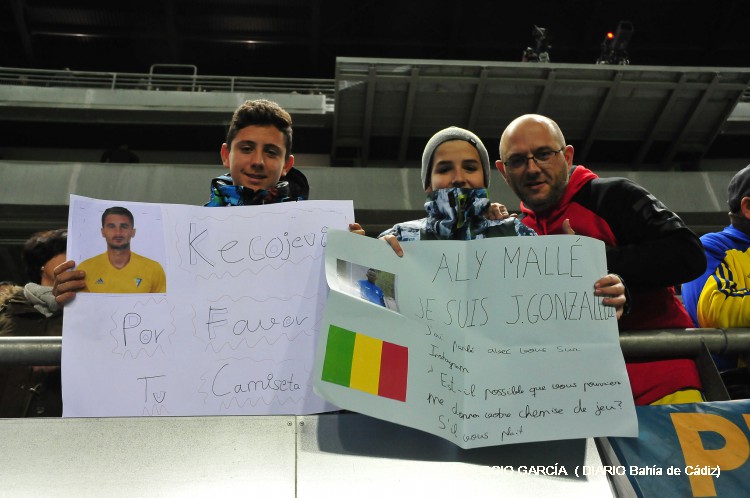 Kecojevi
Por Favor
Tu Camiseta
ALY MALLÉ
JE SUIS J.GONZAL
J'ai parlé avec vous sur
Instagram
Est-il possible que vous pourriez
me donner votre chemise de jeu?
S'il vous plait
GARCÍA ( DIARIO Bahía de Cádiz)
P